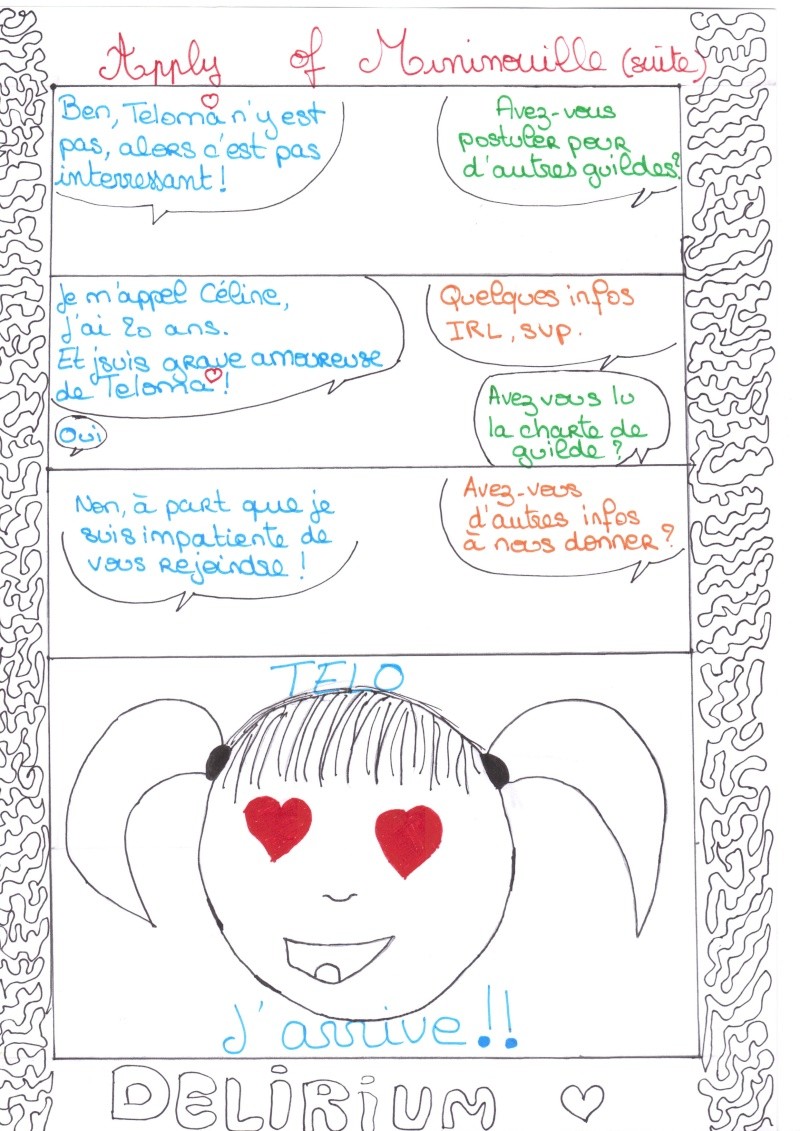 Apply of Mininouille (suite)
Avez-vous
postuler pour
d'autres guildes?
Ben, Teloma n'y est
pas, alors c'est pas
interressant !
Quelques infos
IRL, SVP.
Je m'appel Céline,
j'ai 20 ans.
Et j'suis grave amoureuse
de Teloma !
Avez vous lu
la charte de
guilde ?
Oui
Avez-vous
d'autres infos
à nous donner ?
Non, à part que je
suis impatiente de
vous rejoindre !
TELO
J'arrive !!
DELIRIUM